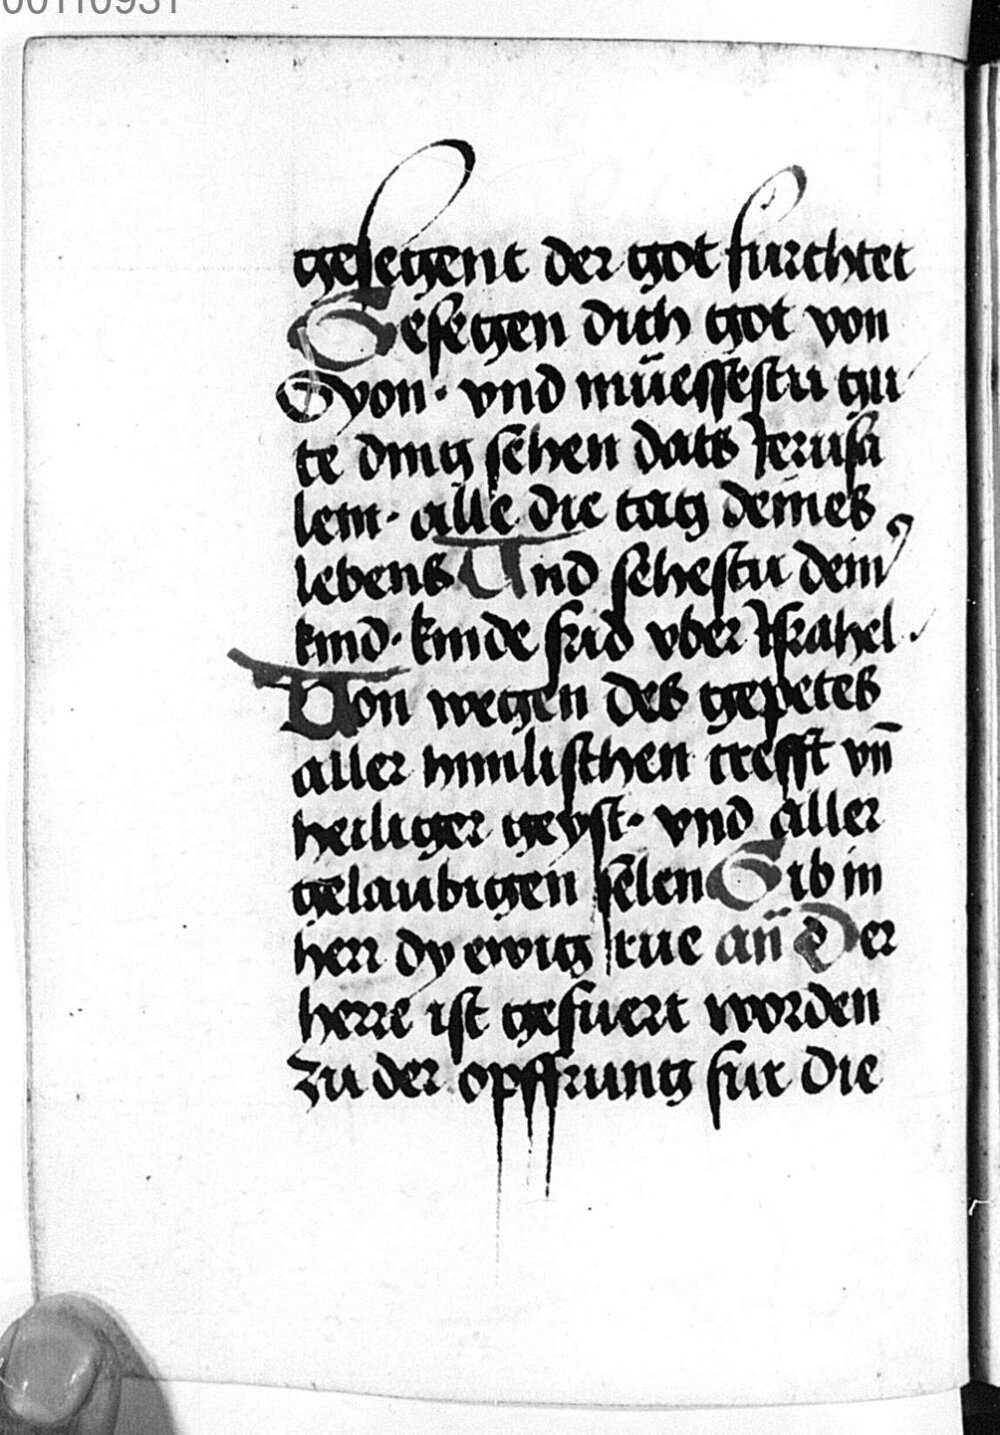 00110931
gesegent der got furchtet
Gesegen dich got von
Syon · vnd müessestu gu
te ding sehen dats Jerusa
lem · alle die tag deines
lebens Und sehestu deiner
kind · kinde frid vber Jsrahel ·
Von wegen des gepetes
aller himlischen crefft vn̄
heiliger geyst · vnd aller
gelaubigen selen Gib in
herr dy ewig rue an̄ Der
herre ist gefuert worden
zu der opffrung fur die